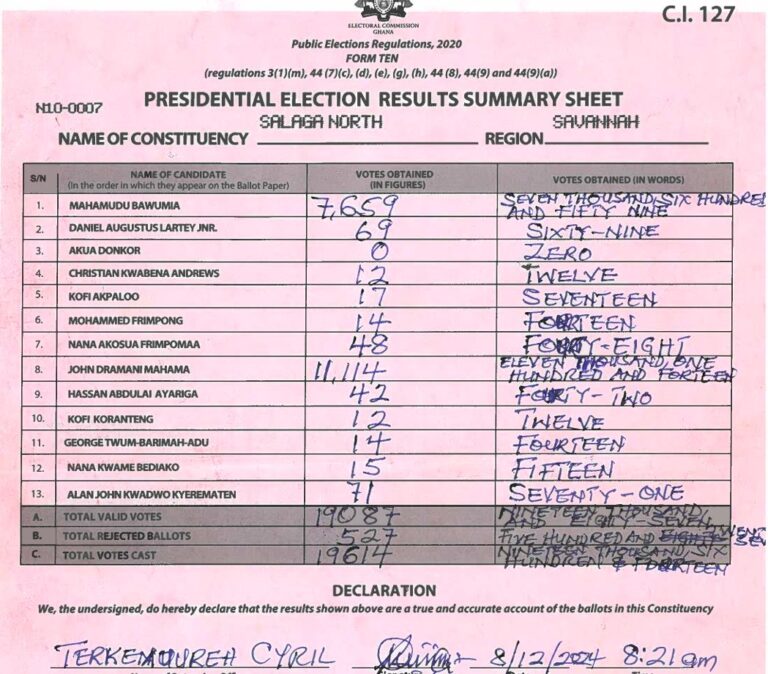 C.I. 127
ELECTORAL COMMISSION
GHANA
Public Elections Regulations, 2020
FORM TEN
(regulations 3(1)(m), 44 (7)(c), (d), (e), (g), (h), 44 (8), 44(9) and 44(9)(a))
N10-0007
PRESIDENTIAL ELECTION RESULTS SUMMARY SHEET
NAME OF CONSTITUENCY SALAGA NORTH REGION SAVANNAH
S/N NAME OF CANDIDATE (In the order in which they appear on the Ballot Paper) VOTES OBTAINED (IN FIGURES) VOTES OBTAINED (IN WORDS)
1. MAHAMUDU BAWUMIA 7,659 SEVEN THOUSAND, SIX HUNDRED AND FIFTY NINE
2. DANIEL AUGUSTUS LARTEY JNR. 69 SIXTY-NINE
3. AKUA DONKOR 0 ZERO
4. CHRISTIAN KWABENA ANDREWS 12 TWELVE
5. KOFI AKPALOO 17 SEVENTEEN
6. MOHAMMED FRIMPONG 14 FOURTEEN
7. NANA AKOSUA FRIMPOMAA 48 FORTY-EIGHT
8. JOHN DRAMANI MAHAMA 11,114 ELEVEN THOUSAND, ONE HUNDRED AND FORTEEN
9. HASSAN ABDULAI AYARIGA 42 FORTY-TWO
10. KOFI KORANTENG 12 TWELVE
11. GEORGE TWUM-BARIMAH-ADU 14 FOURTEEN
12. NANA KWAME BEDIAKO 15 FIFTEEN
13. ALAN JOHN KWADWO KYEREMATEN 71 SEVENTY-ONE
A. TOTAL VALID VOTES 19087 NINETEEN THOUSAND, AND EIGHTY-SEVEN
B. TOTAL REJECTED BALLOTS 527 FIVE HUNDRED AND
C. TOTAL VOTES CAST 19614 NINETEEN THOUSAND, SIX HUNDREN & FOURTEEN
DECLARATION
We, the undersigned, do hereby declare that the results shown above are a true and accurate account of the ballots in this Constituency
CYRIL 8/12/2024 8:21am